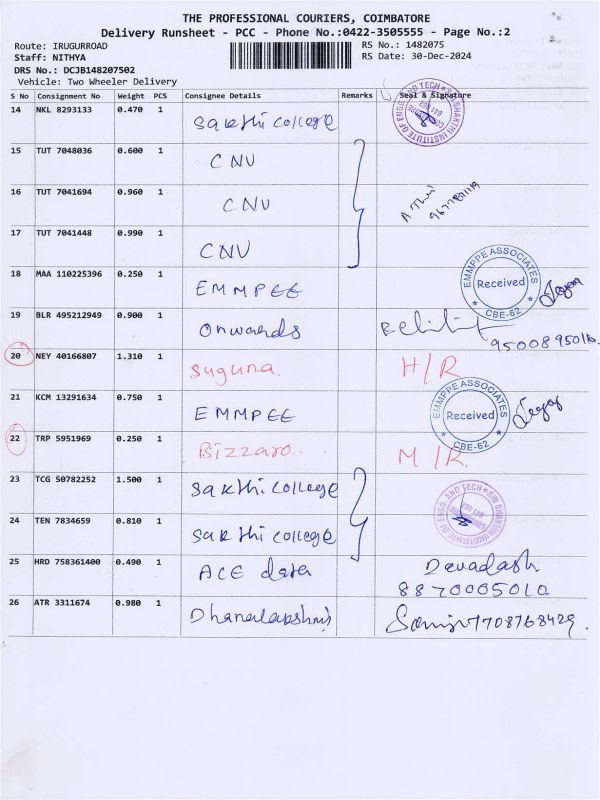 THE PROFESSIONAL COURIERS, COIMBATORE
Delivery Runsheet - PCC - Phone No.:0422-3505555 - Page No.:2
Route: IRUGURROAD
RS No.: 1482075
Staff: NITHYA
RS Date: 30-Dec-2024
DRS No.: DCJB148207502
Vehicle: Two Wheeler Delivery
S No Consignment No Weight PCS Consignee Details Remarks Seal & Signature
14 NKL 8293133 0.470 1 Sakthi College
15 TUT 7048036 0.600 1 CNV
16 TUT 7041694 0.960 1 CNV
17 TUT 7041448 0.990 1 CNV
18 MAA 110225396 0.250 1 EMMPEE
EMMPPE ASSOCIATES
Received
CBE-62
19 BLR 495212949 0.900 1 Onwards
20 NEY 40166807 1.310 1 Suguna. H/R
21 KCM 13291634 0.750 1 EMMPEE
EMMPPE ASSOCIATES
Received
CBE-62
22 TRP 5951969 0.250 1 Bizzaro... M/R.
23 TCG 50782252 1.500 1 Sakthi College
24 TEN 7834659 0.810 1 Sakthi College
25 HRD 758361400 0.490 1 ACE data Devadash
8870005010
26 ATR 3311674 0.980 1 Dhanalapshmi 7708768429.